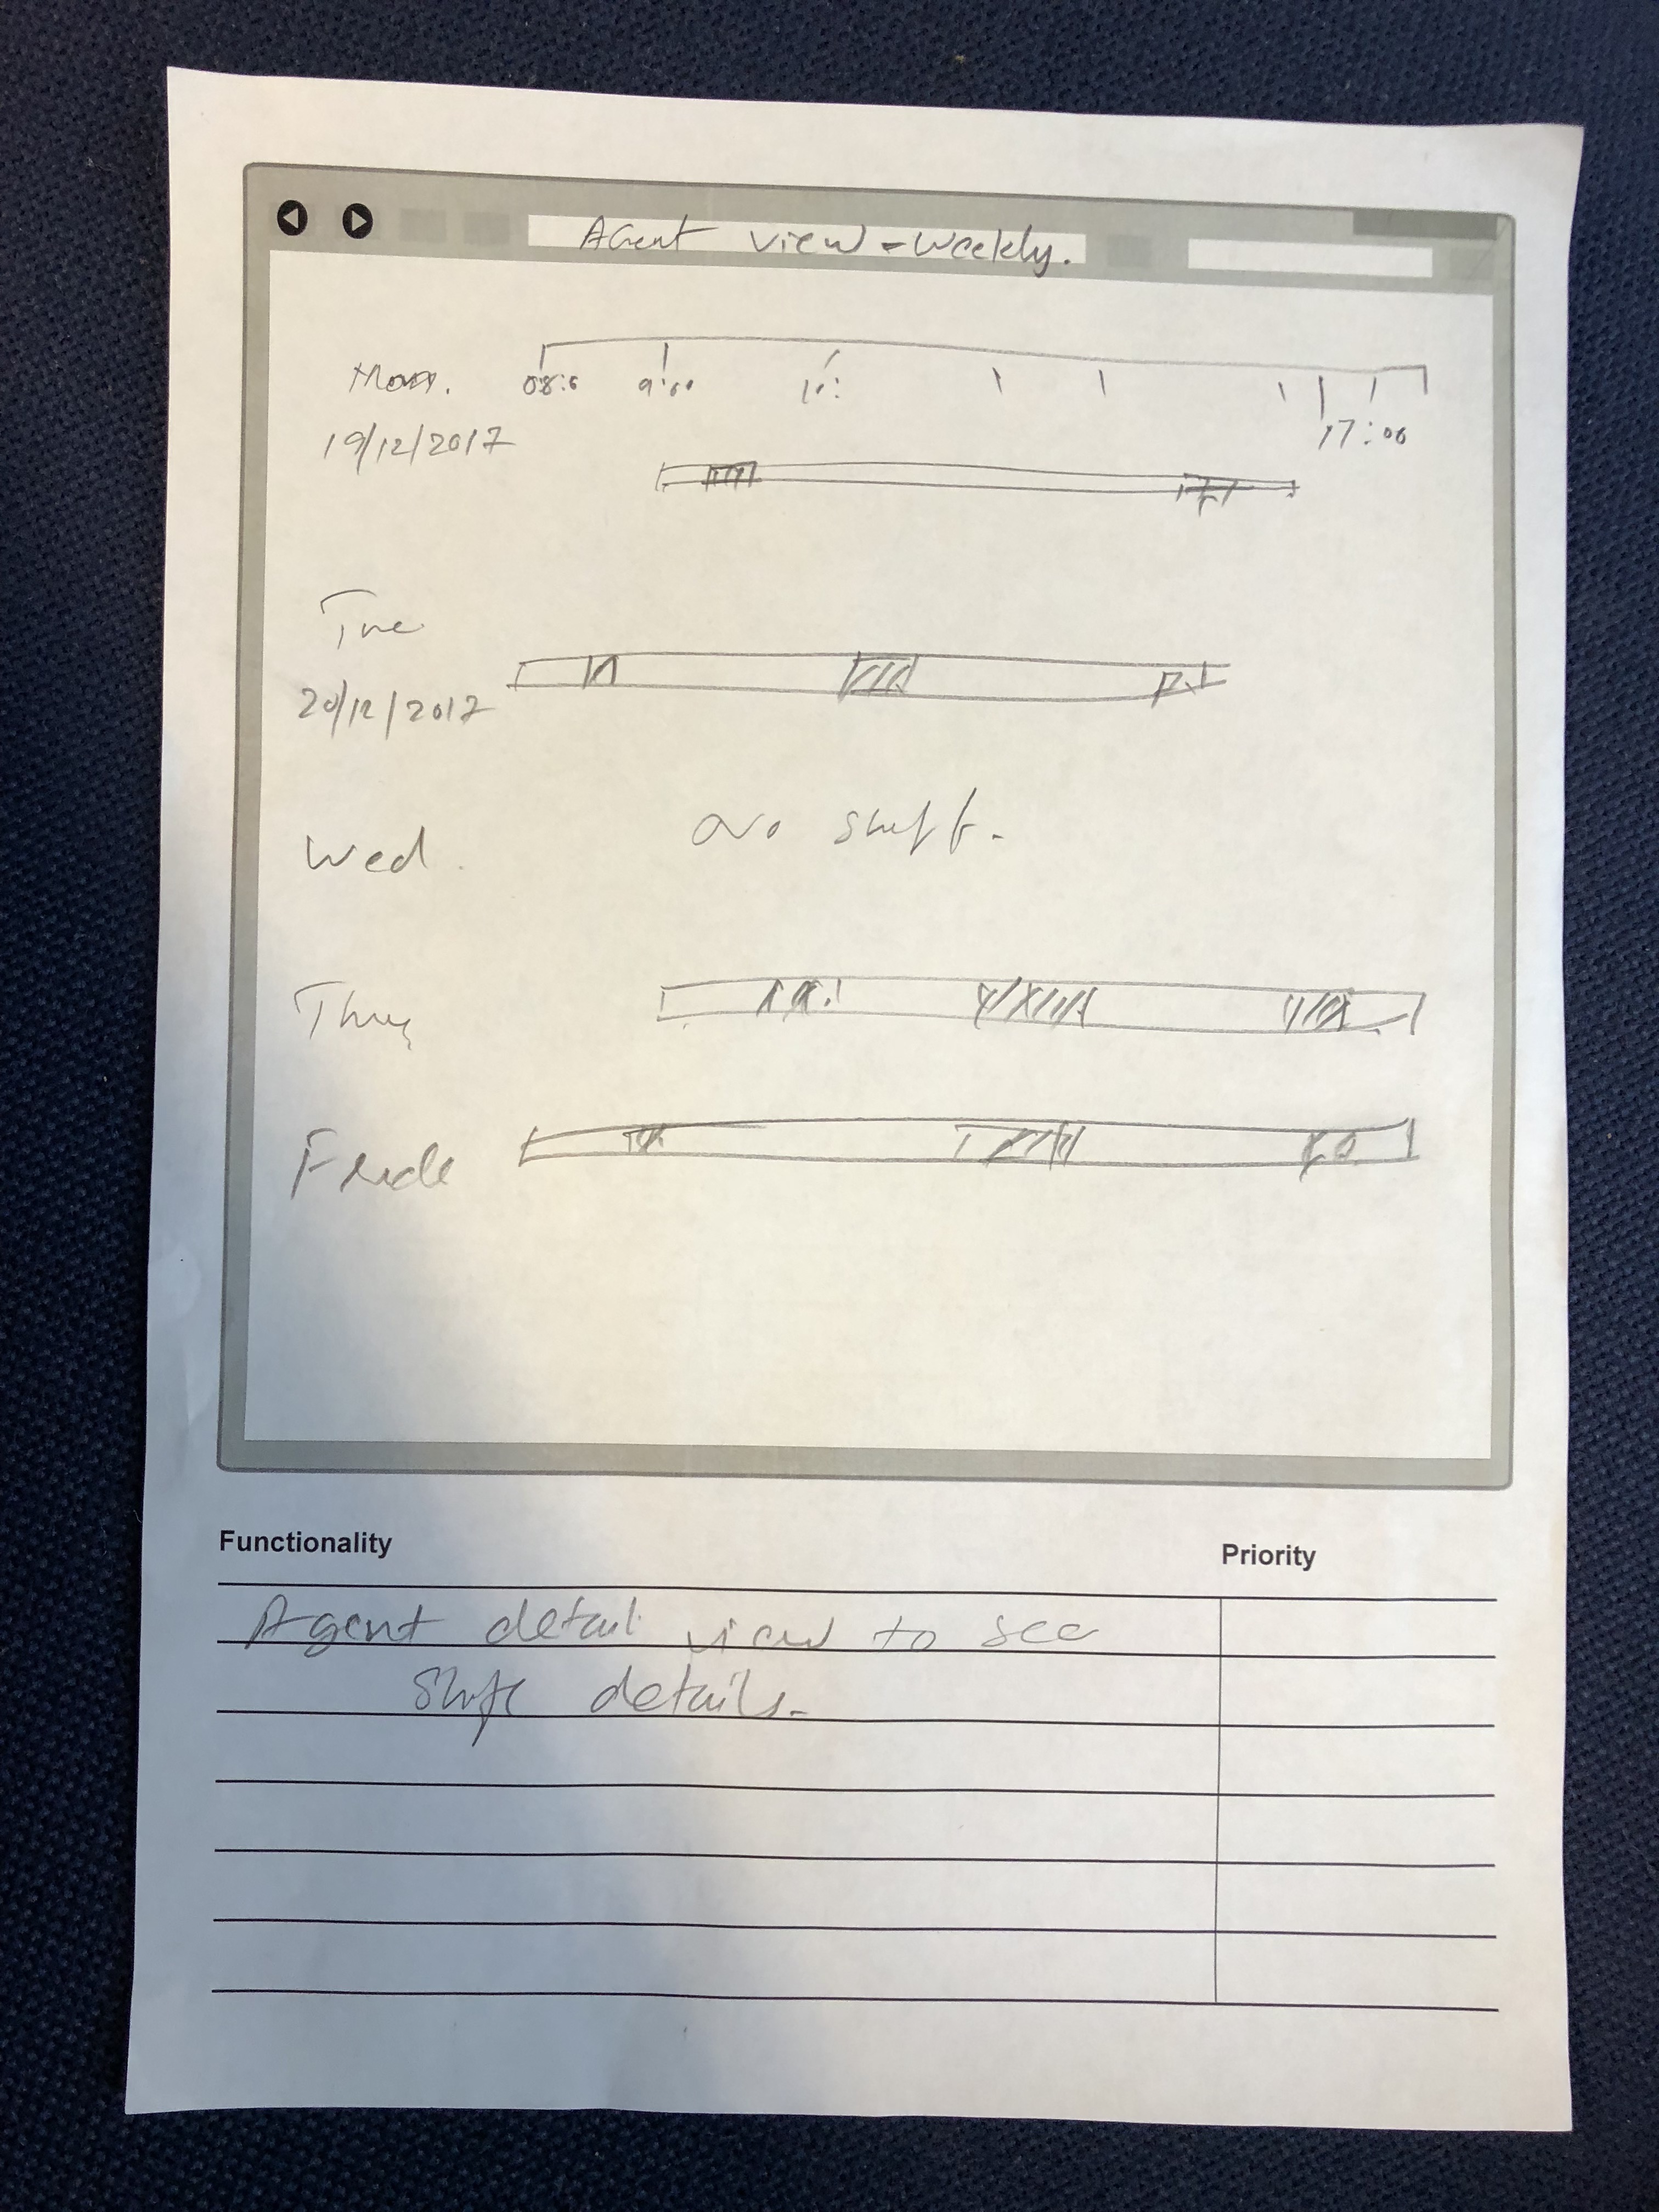 Agent view - Weekly.
Mon. 08:0 9:00 10:
17:00
19/12/2017
Tue
20/12/2017
Wed. No shift.
Thu
Functionality Priority
Agent detail view to see
Shift details.